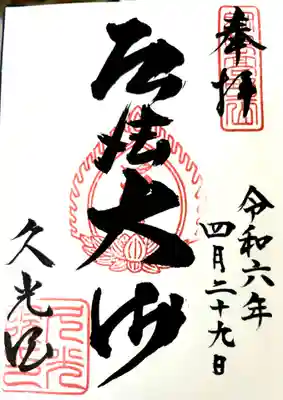 奉拝
令和六年
四月二十九日
弘法大師
久光